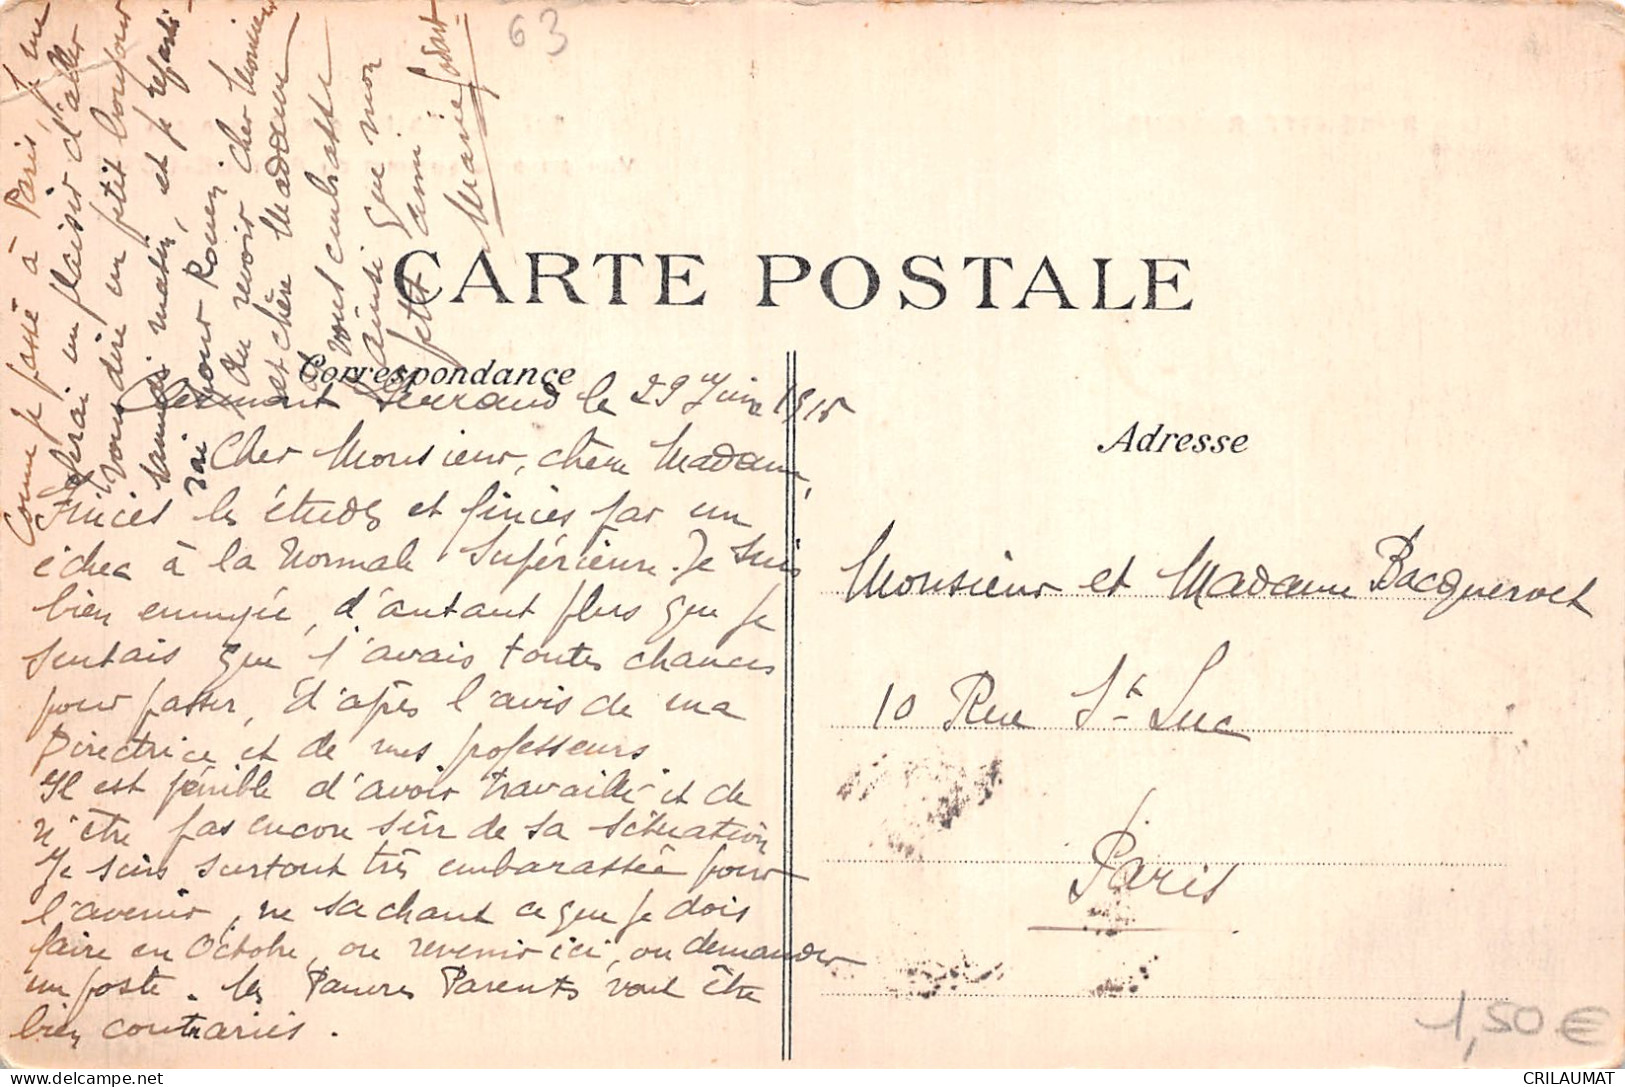 63
CARTE POSTALE
Correspondance
Clermont Ferrand le 29 Juin 1915
Cher Monsieur, chère Madame,
Finies les études et finies par un
échec à la Normale Supérieure. Je suis
bien ennuyée, d'autant plus que je
sentais que j'avais toutes chances
pour passer, d'après l'avis de ma
Directrice et de mes professeurs
Il est pénible d'avoir travaillé et de
n'être pas encore sûr de sa situation
Je suis surtout très embarassée pour
l'avenir, ne sachant ce que je dois
faire en Octobre, ou revenir ici, ou demander
un poste. Les Pauvres Parents vont être
bien contrariés.
Comme je passe à Paris, je me
ferai un plaisir d'aller
vous dire un petit bonjour
samedi matin, et je repartirai
pour Rouen.
Au revoir cher Monsieur
et chère Madame
je vous embrasse
ainsi que mon
petit ami
Marie Godart
Adresse
Monsieur et Madame Bacquervet
10 Rue St Luc
Paris
1,50 €
CRILAUMAT